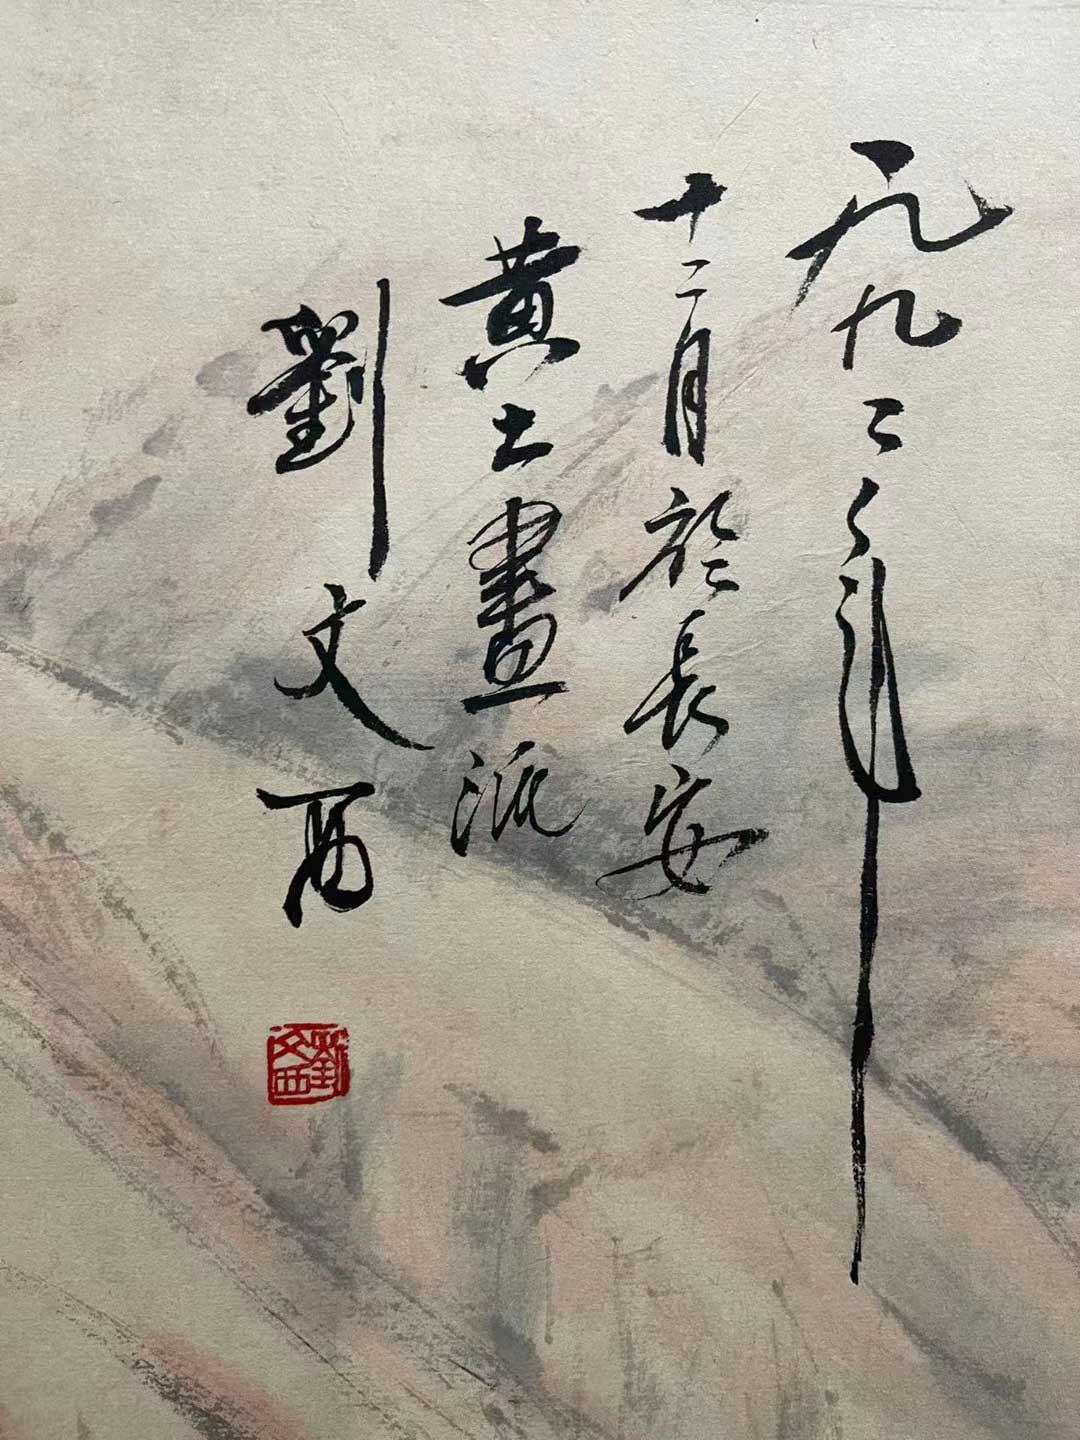 一九九二年
十二月於長安
黄土畫派
劉文西
劉文西